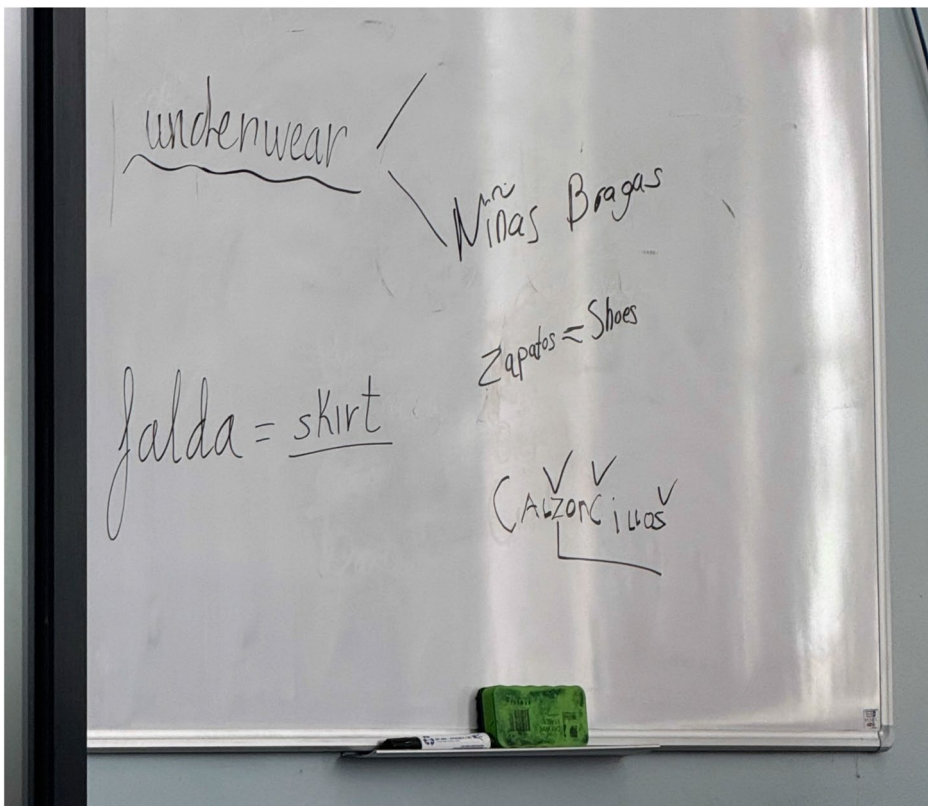 underwear
Niñas Bragas
Zapatos = Shoes
falda = skirt
CALZONCiLLOS